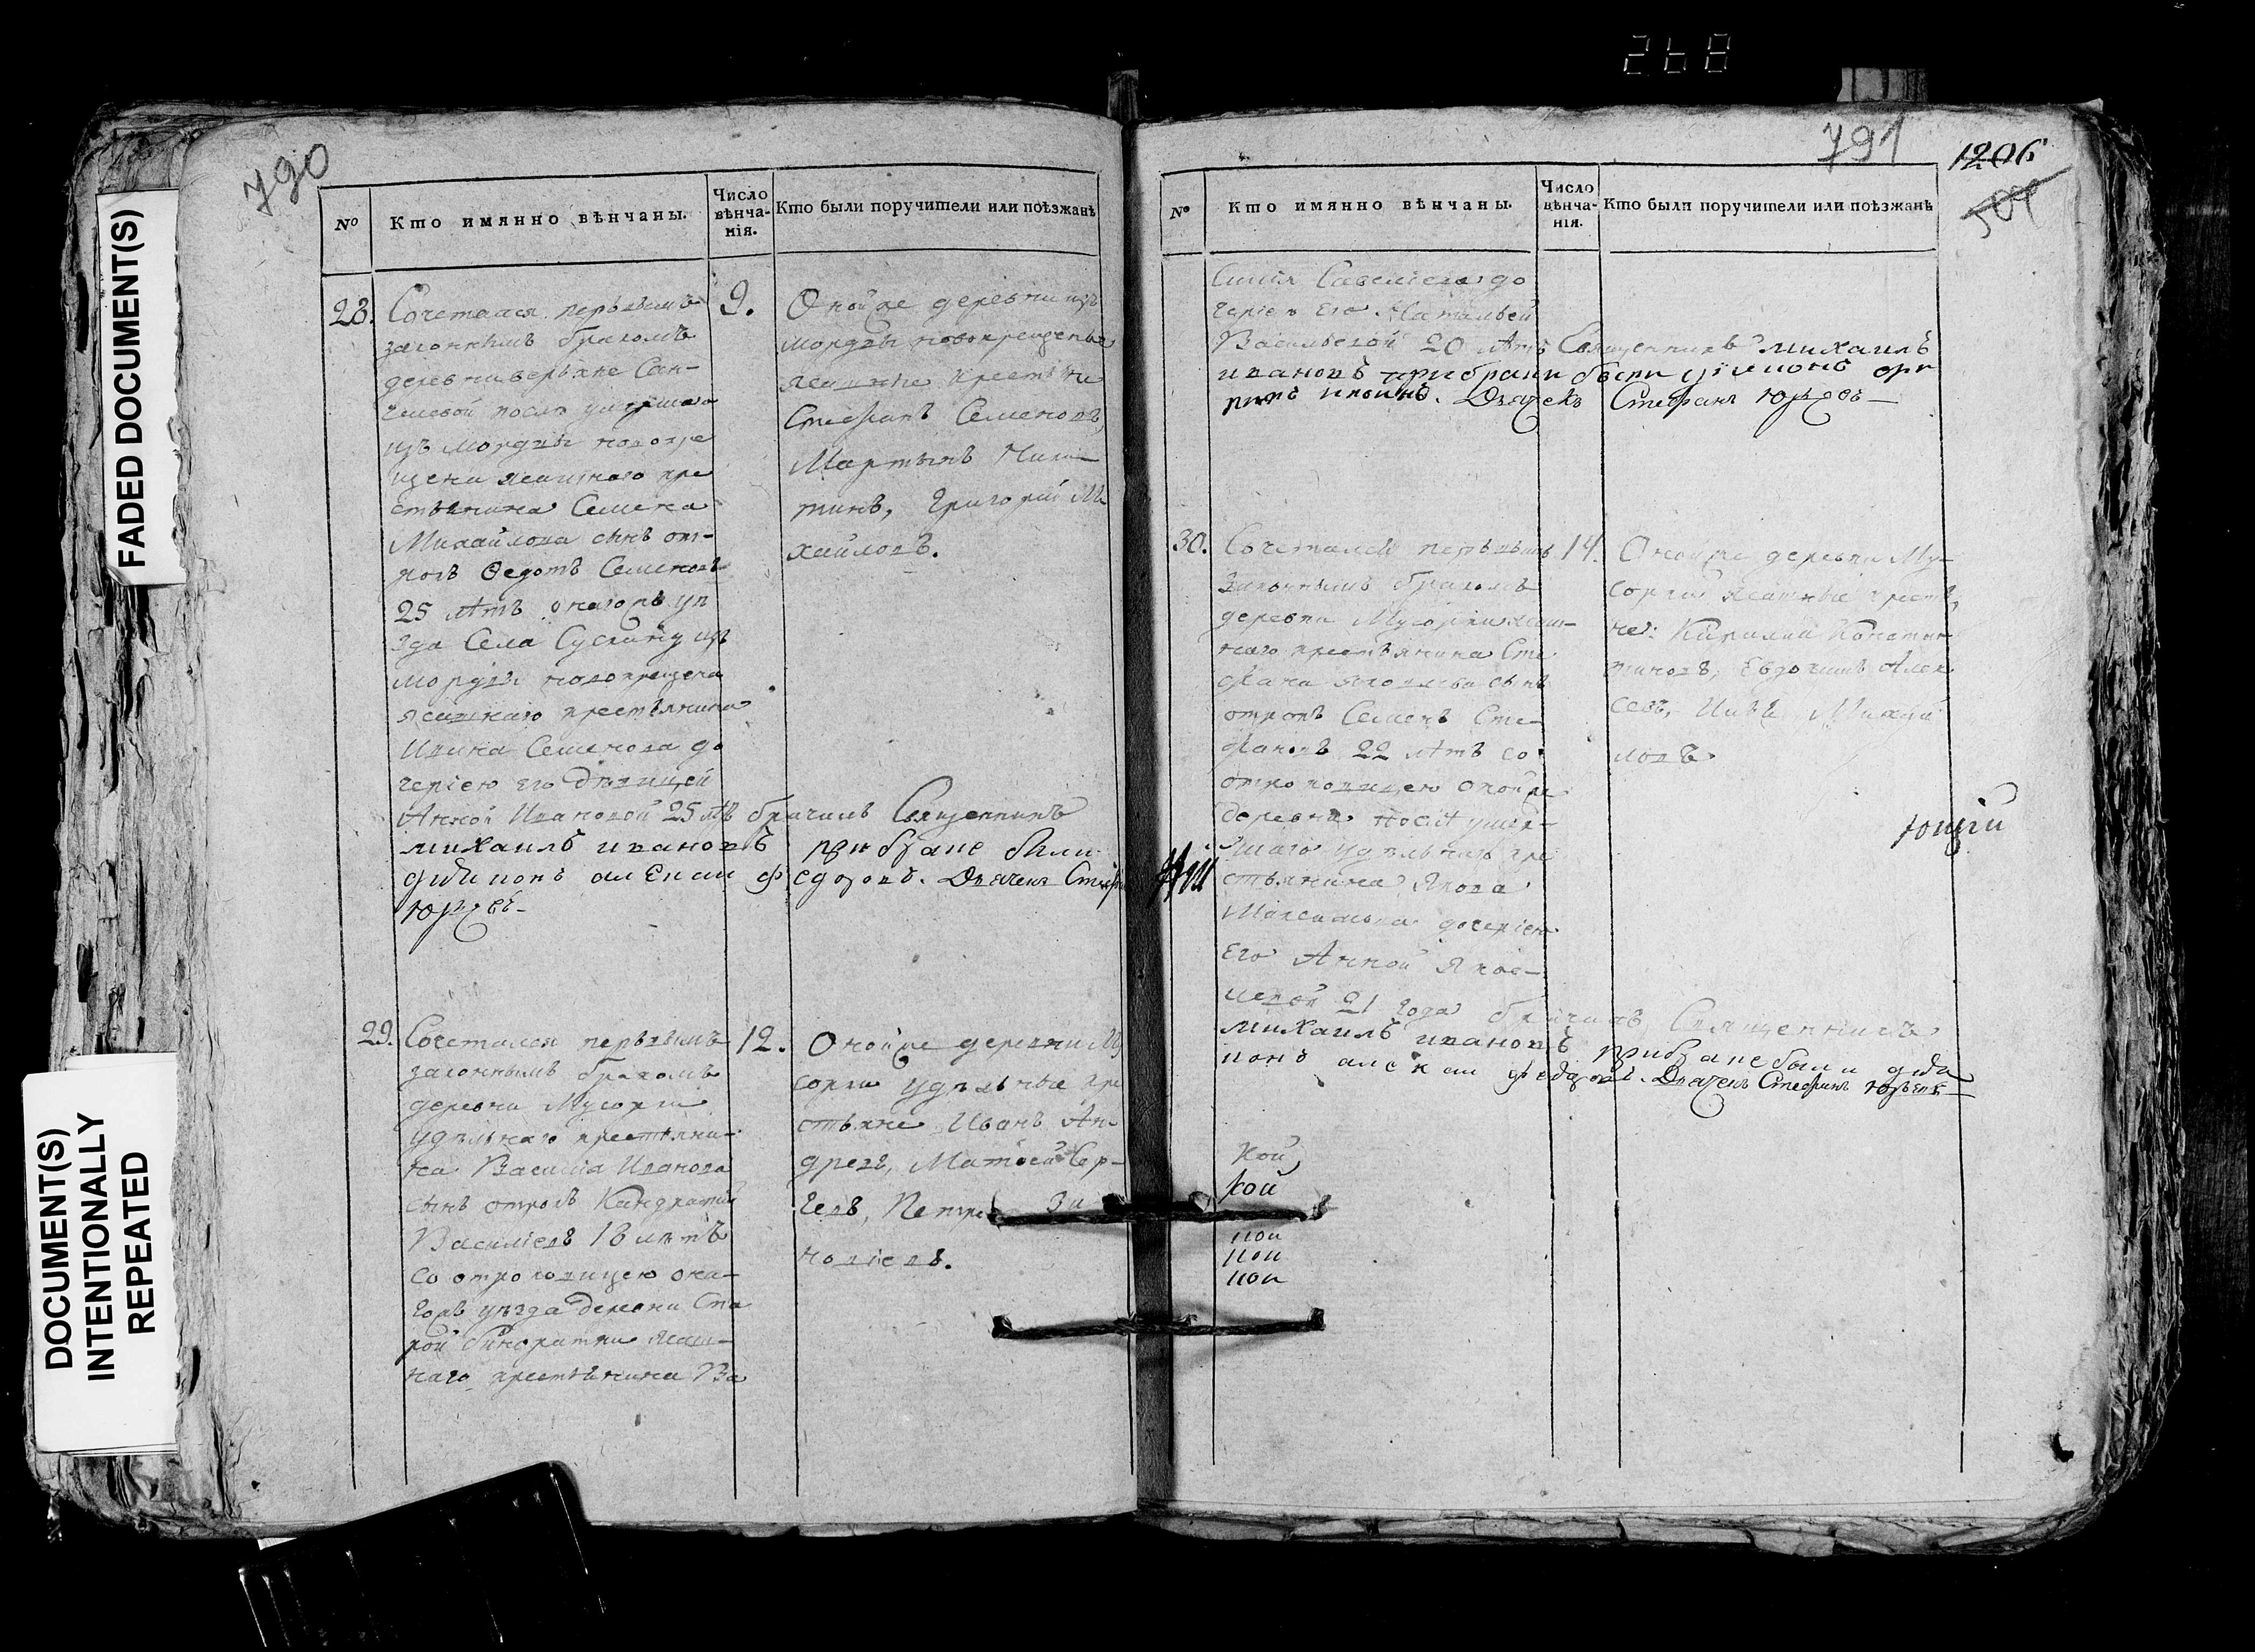 268
FADED DOCUMENT(S)
DOCUMENT(S)
INTENTIONALLY
REPEATED
790
№ Кто имянно вѣнчаны. Число вѣнчанія. Кто были поручители или поѣзжанѣ
28. Сочетался первымъ 9.
законнымъ бракомъ
деревни верьхне Сан-
челеевой после умершаго
изъ мордвы новокре
щена ясашнаго кре
стьянина Семена
Михайлова сынъ от-
рокъ Ѳедотъ Семеновъ
25 лѣтъ онагожъ уѣ
зда Села Сускану изъ
мордвы новокрещена
ясашнаго крестьянина
Ивана Семенова до
черїею его дѣвицей
Анной Ивановой 25 лѣтъ бр. чилъ Священникъ
михаилъ ивановъ при браке были
дьячекъ Стефанъ
Юрьевъ
Оной же деревни изъ
мордвы новокрещены
ясашные крестьяне
Стефанъ Семеновъ,
Мартынъ Ники-
тинъ, Григорій Ми
хайловъ.
29. Сочетался первымъ 12.
законнымъ бракомъ
деревни Мусорки
удѣльнаго крестьяни-
на Василія Иванова
сынъ отрокъ Кандратій
Василіевъ 18 лѣтъ
со отроковицею она-
горъ уѣзда деревни Ста
рой Бинаратки ясаш-
наго крестьянина Ва
Оной же деревни Му
сорки удѣльные кре
стьяне Иванъ Ан-
дреевъ, Матѳей Сер-
геевъ, Петре Зи
новіевъ.
791
1206
№ Кто имянно вѣнчаны. Число вѣнчанія. Кто были поручители или поѣзжанѣ
силія Савеліева до
черію его Натальей
Васильевой 20 лѣтъ Священникъ михаилъ
ивановъ при браки были
Дьячекъ Стефанъ Юрьевъ
30. Сочетался первымъ 14.
законнымъ бракомъ
деревни Мусорки ясаш-
наго крестьянина Сте
фана Яковлева сынъ
отрокъ Семенъ Сте-
фановъ 22 лѣтъ со
отроковицею оной же
деревни после умер-
шаго удѣльнаго кре
стьянина Якова
Максимова дочерїею
Его Анной Яков-
левой 21 года Священникъ
михаилъ ивановъ при браке были
Дьячекъ Стефанъ Юрьевъ
Оной же деревни Му-
сорки ясашные крестья
не: Кирилла Констан
тиновъ, Евдокимъ Алек
сеевъ, Михай
ловъ
ющій
ной
кой
ной
ной
ной